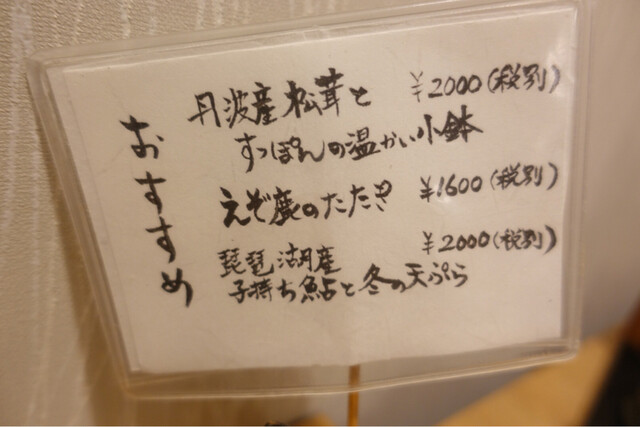 おすすめ
丹波産松茸と ¥2000(税別)
すっぽんの温かい小鉢
えぞ鹿のたたき ¥1600(税別)
琵琶湖産 ¥2000(税別)
子持ち鮎と冬の天ぷら